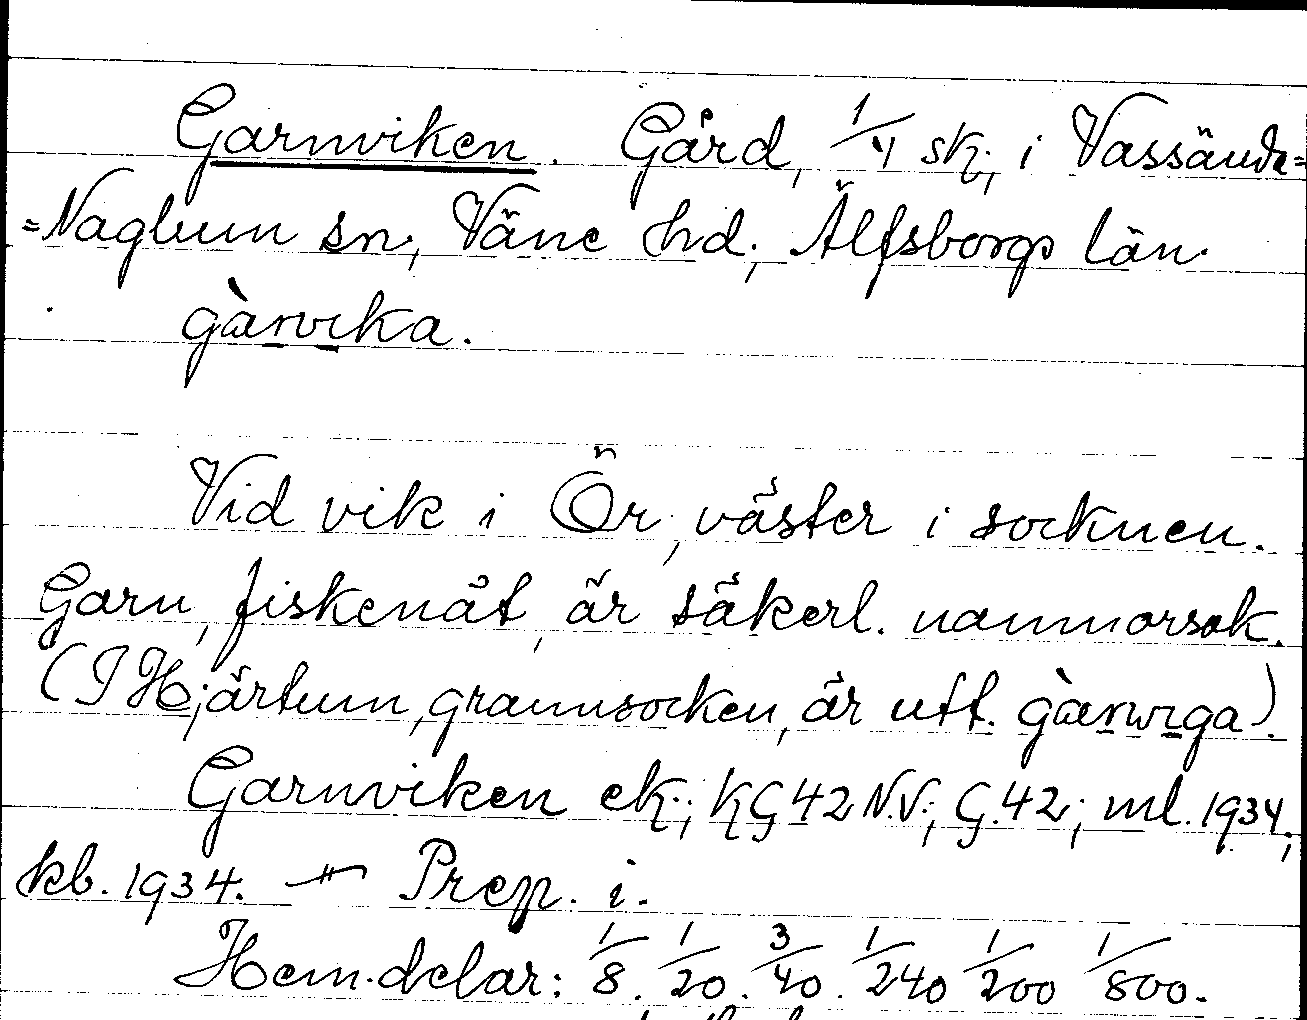 Garnviken. Gård, 1/4 sk., i Vassända=
=Naglum sn., Väne hd., Älfsborgs län.
gàrvika.
Vid vik i Ör, väster i socknen.
Garn, fiskenät, är säkerl. namnorsak.
(I Hjärtum, grannsocken, är utt. gàrviga).
Garnviken ek.; KG 42 N.V.; G. 42; ml. 1934;
kb. 1934. — Prep. i.
Hem.delar: 1/8. 1/20. 3/40. 1/240 1/200 1/800.